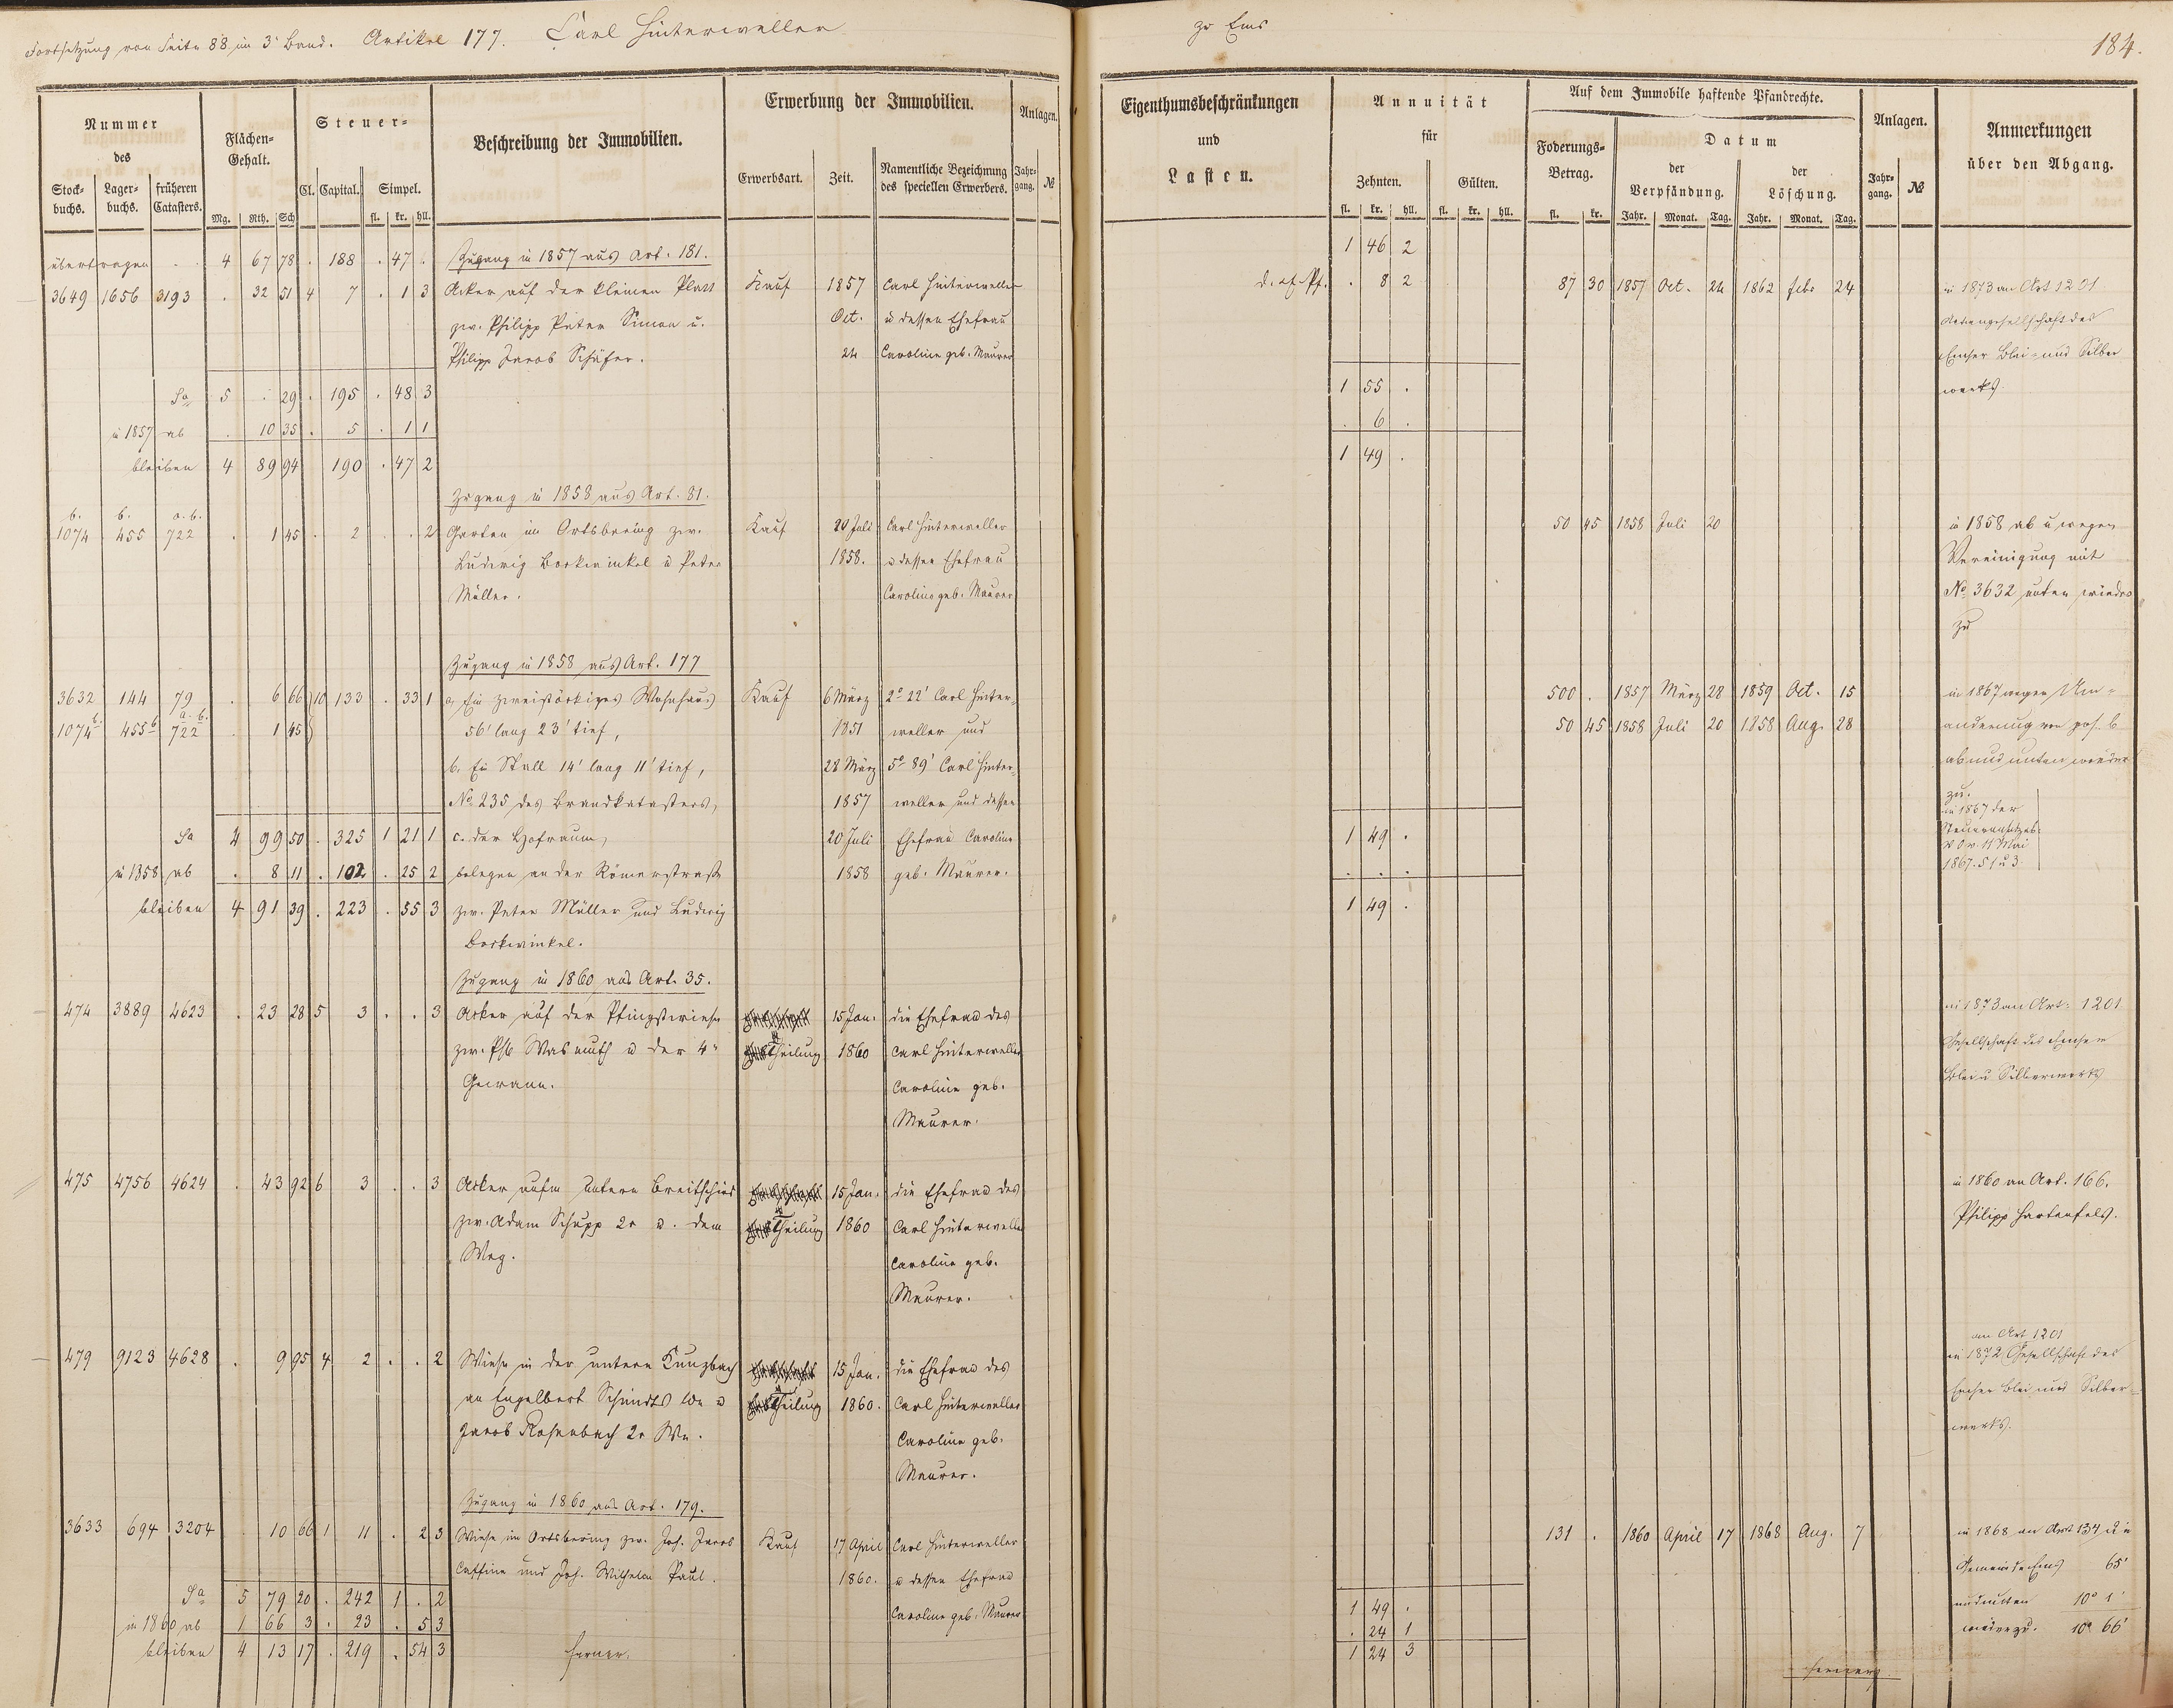 Fortsetzung von Seite 88 im 3' Band. Artikel 177. Carl Hinterweller
zu Ems
184.
Nummer des
Stock-buchs. Lager-buchs. früheren Catasters.
Flächen-Gehalt.
Mg. Rth. Sch
Steuer-
Cl. Capital. Simpel.
fl. kr. hll.
Beschreibung der Immobilien.
Erwerbung der Immobilien.
Erwerbsart. Zeit. Namentliche Bezeichnung des speciellen Erwerbers.
Anlagen.
Jahr-gang. №
Eigenthumsbeschränkungen
und
Lasten.
Annuität
für
Zehnten. Gülten.
fl. kr. hll. fl. kr. hll.
Auf dem Immobile haftende Pfandrechte.
Foderungs-Betrag.
fl. kr.
Datum
der Verpfändung. der Löschung.
Jahr. Monat. Tag. Jahr. Monat. Tag.
Anlagen.
Jahr-gang. №
Anmerkungen
über den Abgang.
übertragen . . 4 67 78 . 188 . 47 . Zugang in 1857 aus Art. 181. 1 46 2
3649 1656 3193 . 32 51 4 7 . 1 3 Acker auf der kleinen Platt Kauf 1857 Carl Hinterweller . 8 2 87 30 1857 Oct. 24 1862 Febr 24 in 1873 an Art 1201
zw. Philipp Peter Simon u. Oct. u dessen Ehefrau Actiengesellschaft des
Philipp Jacob Schäfer. 24 Caroline geb. Maurer Emser Blei- und Silber
werks
Sa 5 . 29 . 195 . 48 3 1 55 .
in 1857 ab . 10 35 . 5 . 1 1 . 6 .
bleiben 4 89 94 190 . 47 2 1 49 .
Zugang in 1858 aus Art. 81.
b. b. a. b.
1074 455 722 . 1 45 . 2 . . 2 Garten im Ortsbering zw. Kauf 20 Juli Carl Hinterweller 50 45 1858 Juli 20 in 1858 ab u wegen
Ludwig Bockwinkel u Peter 1858. u dessen Ehefrau Vereinigung mit
Müller. Caroline geb. Maurer No 3632 unten wieder
zu
Zugang in 1858 aus Art. 177
3632 144 79 . 6 66 10 133 . 33 1 a, Ein zweistöckiges Wohnhaus Kauf 6 März 2° 22' Carl Hinter- 500 . 1857 März 28 1859 Oct. 15 in 1867 wegen Um-
1074 b. 455 b 722 a. b. 1 45 56' lang 23' tief, 1851 weller und 50 45 1858 Juli 20 1858 Aug. 28 änderung von pos. b
b. Ein Stall 14' lang 11' tief, 28 März 5° 89' Carl Hinter- ab und unten wieder
No 235 des Brandkatasters, 1857 weller und dessen zu.
in 1867 der
Sa 4 99 50 . 325 1 21 1 c. der Hofraum, 20 Juli Ehefrau Caroline 1 49 .
11 Mai
in 1858 ab . 8 11 . 102 . 25 2 belegen an der Römerstraße 1858 geb. Maurer. . . . 1867. §1 u 3
bleiben 4 91 39 . 223 . 55 3 zw. Peter Müller und Ludwig 1 49 .
Bockwinkel.
Zugang in 1860 aus Art. 35.
474 3889 4623 . 23 28 5 3 . . 3 Acker auf der Pfingstwiese 15 Jan. die Ehefrau des in 1873 an Art: 1201
zw. Phl Wasmuth u der 4n Theilung 1860 Carl Hinterweller Gesellschaft des Emser
Gewann. Caroline geb. Blei u Silberwerks
Maurer.
475 4756 4624 . 43 92 6 3 . . 3 Acker aufm untern Breitschied 15 Jan. die Ehefrau des in 1860 an Art. 166.
zw. Adam Schupp 2r u. dem Theilung 1860 Carl Hinterweller Philipp Hartenfels.
Weg. Caroline geb.
Maurer.
an Art 1201
479 9123 4628 . 9 95 4 2 . . 2 Wiese in der untern Kunzbach 15 Jan. die Ehefrau des in 1872 Gesellschaft des
an Engelbert Schmidts Wn u Theilung 1860. Carl Hinterweller Emser Blei und Silber-
Jacob Rosenbach 2r Wn. Caroline geb. werks.
Maurer.
Zugang in 1860 aus Art. 179.
3633 694 3204 10 66 1 11 . 2 3 Wiese im Ortsbering zw. Joh. Jacob Kauf 17 April Carl Hinterweller 131 . 1860 April 17 1868 Aug. 7 in 1868 an Art 134
und Joh. Wilhelm Paul. 1860. u dessen Ehefrau Gemeinde Ems 65'
Sa 5 79 20 . 242 1 . 2 Caroline geb. Maurer 1 49 . und unten 10° 1'
in 1860 ab 1 66 3 . 23 . 5 3 . 24 1 wieder zu. 10° 66'
bleiben 4 13 17 . 219 . 54 3 ferner. 1 24 3
ferner